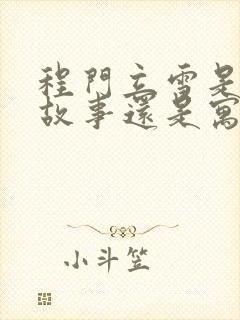 程門立雪是
故事還是寓
小斗笠